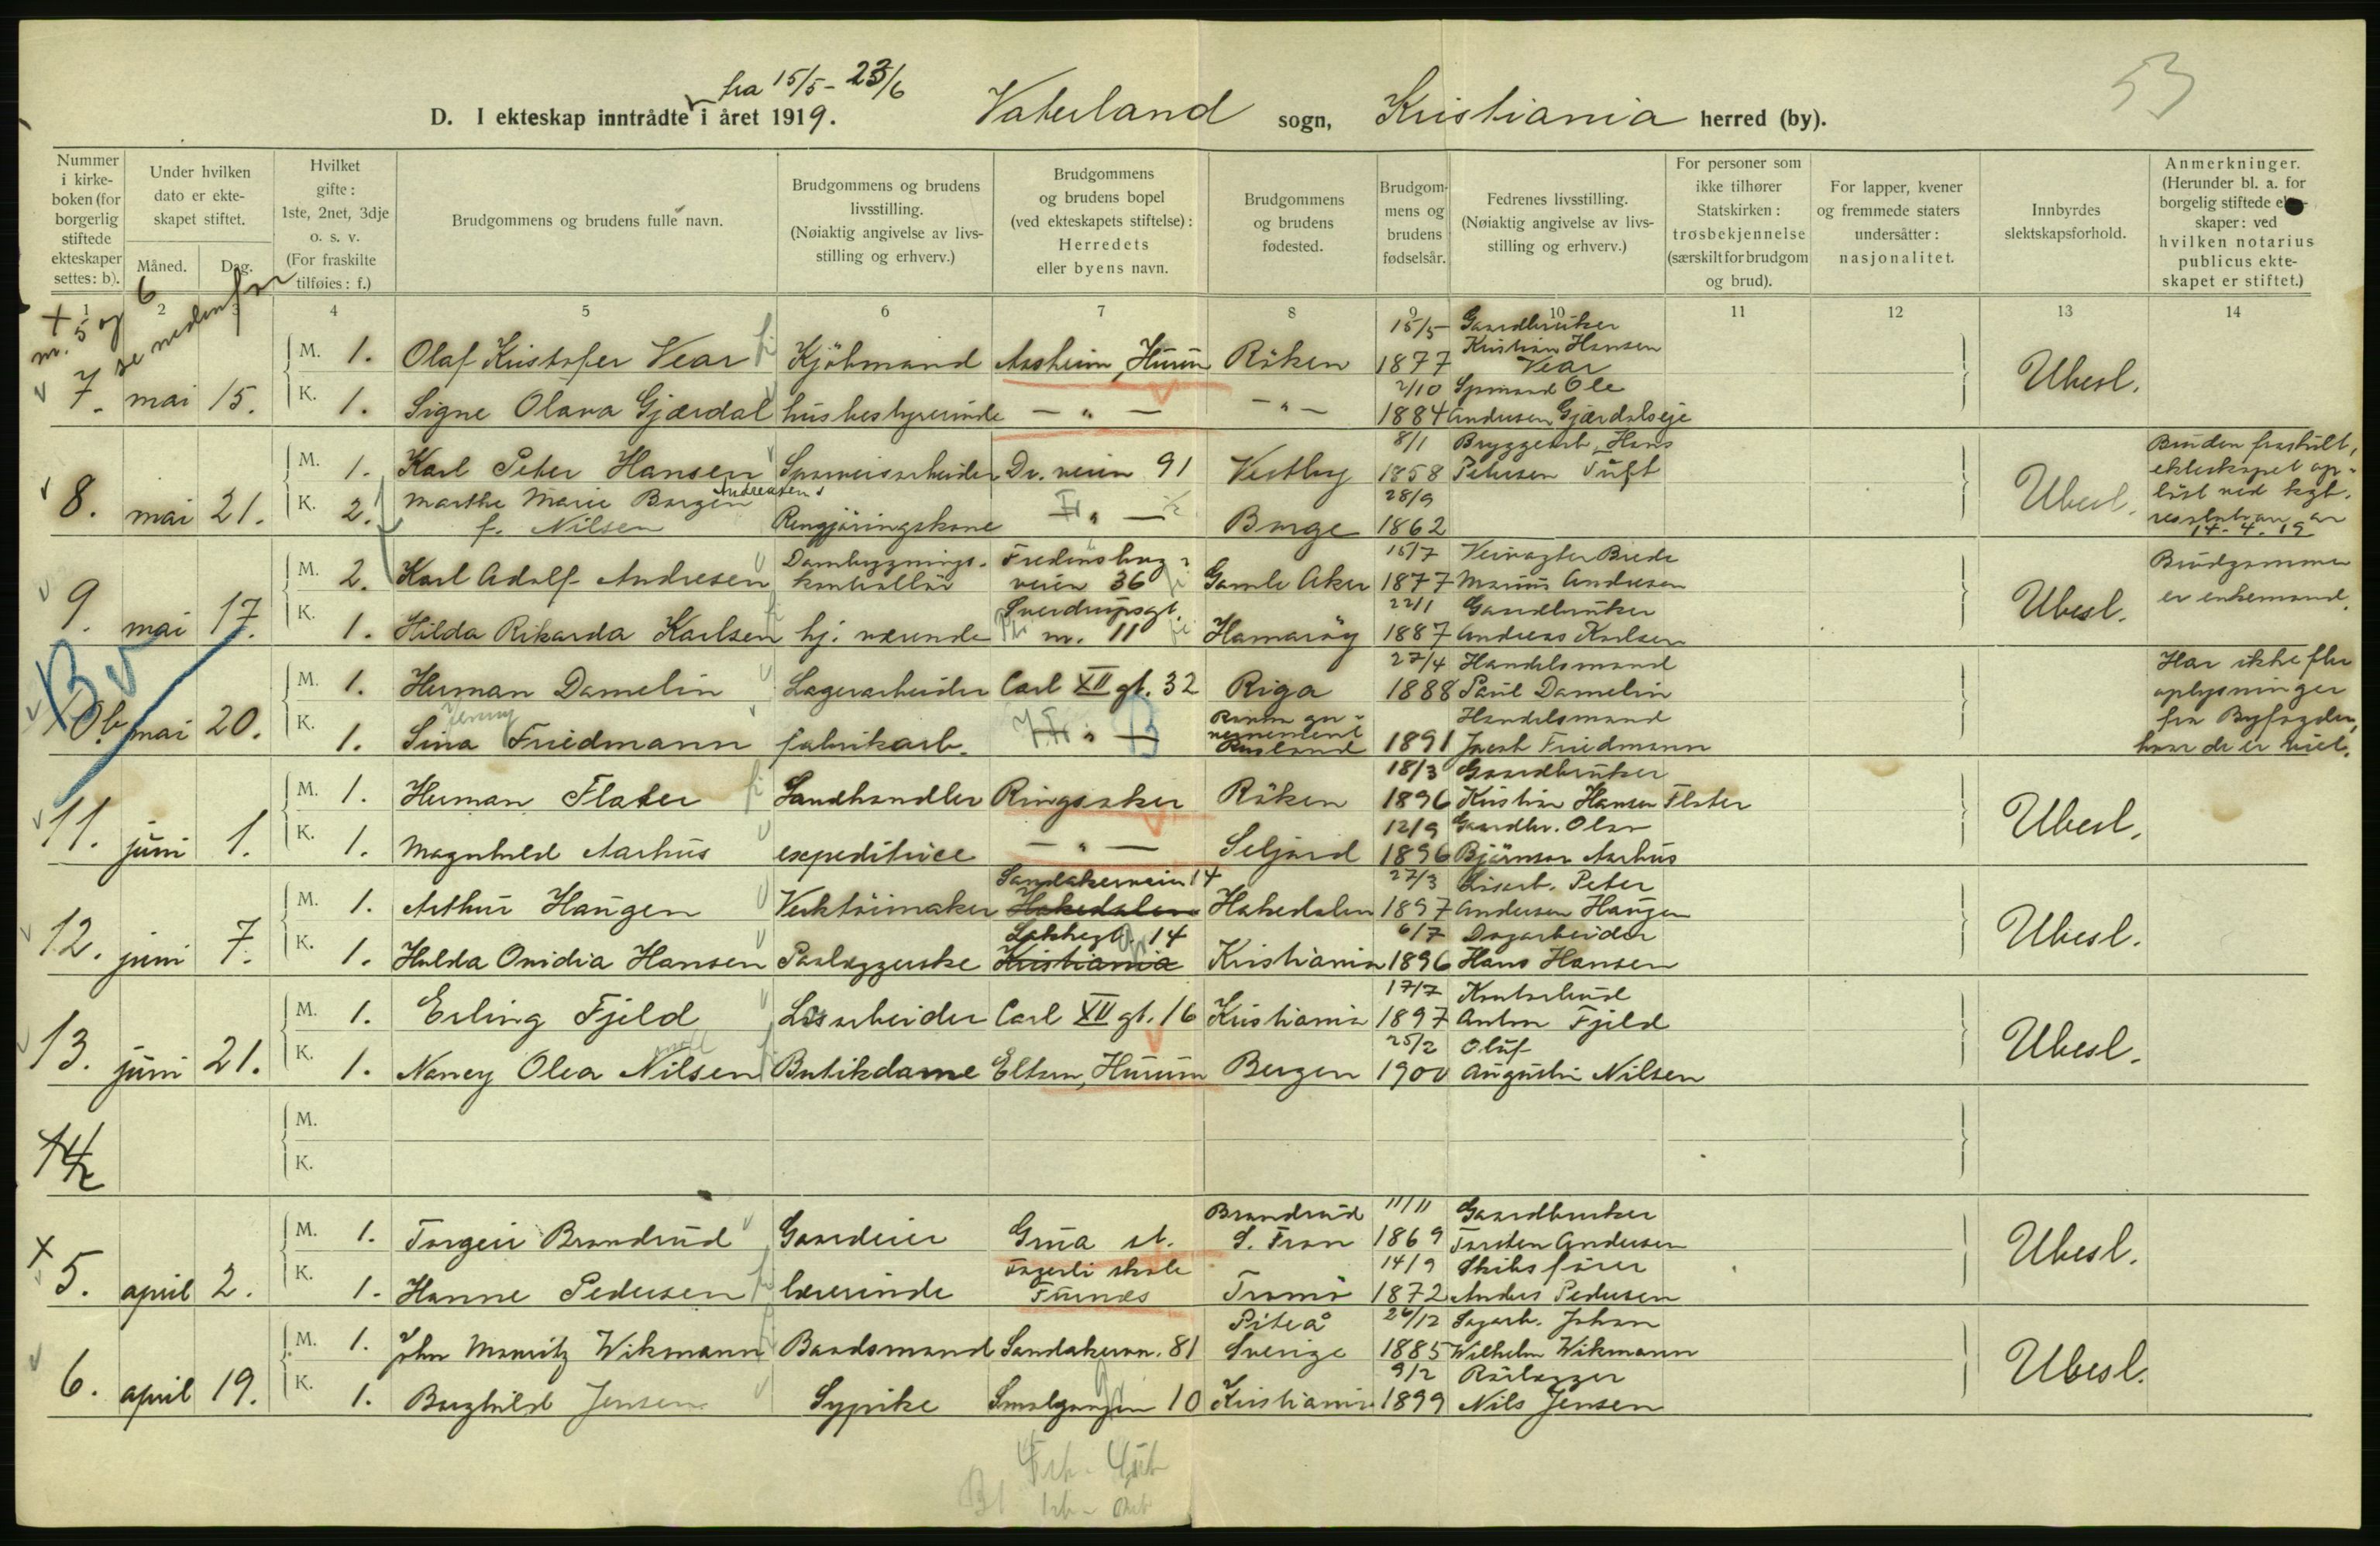 53
fra 15/5 - 23/6
D. I ekteskap inntrådte i året 1919. Vaterland sogn, Kristiania herred (by).
Nummer i kirkeboken (for borgerlig stiftede ekteskaper settes: b).
Under hvilken dato er ekteskapet stiftet.
Måned. Dag.
Hvilket gifte: 1ste, 2net, 3dje o. s. v. (For fraskilte tilføies: f.)
Brudgommens og brudens fulle navn.
Brudgommens og brudens livsstilling. (Nøiaktig angivelse av livsstilling og erhverv.)
Brudgommens og brudens bopel (ved ekteskapets stiftelse): Herredets eller byens navn.
Brudgommens og brudens fødested.
Brudgommens og brudens fødselsår.
Fedrenes livsstilling. (Nøiaktig angivelse av livsstilling og erhverv.)
For personer som ikke tilhører Statskirken: trosbekjennelse (særskilt for brudgom og brud).
For lapper, kvener og fremmede staters undersåtter: nasjonalitet.
Innbyrdes slektskapsforhold.
Anmerkninger. (Herunder bl. a. for borgelig stiftede skaper: ved hvilken notarius publicus ekteskapet er stiftet.)
1 2 3 4 5 6 7 8 9 10 11 12 13 14
+ nr. 5 og 6 se nedenfor
7. mai 15. M. 1. Olaf Kristofer Vear Kjöbmand Aasheim, Hurum Röken 15/5 1877 Gaardbruker Kristian Hansen Vear Ubesl.
K. 1. Signe Olava Gjærdal husbestyrerinde — " — — " — 2/10 1884 Spmand Ole Andersen Gjærdalseje
8. mai 21. M. 1. Karl Peter Hansen Sporveisarbeider Dr. veien 91 Vestby 8/1 1858 Bryggearb. Hans Petersen Tuft Ubesl.
K. 2. Marthe Marie Borgen Andreasen f. Nilsen Rengjöringskone " — Borge 28/9 1862
Bruden fraskilt, ekteskapet oplöst ved kgl. resolution av 14.4.19
9. mai 17. M. 2. Karl Adolf Andresen Dambygningskontrollör Fredensborgveien 36 Gamle Aker 15/7 1877 Veivogter Brede Marius Andresen Ubesl. Brudgommen er enkemand.
K. 1. Hilda Rikarda Karlsen hj. værende Sverdrupsgt. nr. 11 Hamaröy 22/1 1887 Gaardbruker Andreas Karlsen
B
10b. mai 20. M. 1. Herman Damelin Lagerarbeider Carl XII gt. 32 Riga 27/4 1888 Handelsmand Paul Damelin
K. 1. Sina Jenny Friedmann fabrikarb. " — B guvernement Rusland 1891 Handelsmand Jacob Friedmann
Har ikke fler oplysninger fra Byfogden, hvor de er viet.
11. juni 1. M. 1. Herman Flater Landhandler Ringsaker Röken 18/3 1896 Gaardbruker Kristian Hansen Flater Ubesl.
K. 1. Magnhild Aarhus expeditrice — " — Seljord 12/9 1896 Gaardbr. Olav Björnson Aarhus
12. juni 7. M. 1. Arthur Haugen Verktöimaker Sandakerveien 14 Hakedalen Hakedalen 27/3 1897 Peter Andersen Haugen Ubesl.
K. 1. Hulda Ovidia Hansen Paalæggerske Lakkegt. 14 Kristiania Kristiania 6/7 1896 Dagarbeider Hans Hansen
13. juni 21. M. 1. Erling Fjeld Lösarbeider Carl XII gt. 16 Kristiania 17/7 1897 Kontorbud Anton Fjeld Ubesl.
K. 1. Nancy Olea Nilsen Butikdame Elton, Hurum Bergen 25/2 1900 Oluf Augustin Nilsen
14
M.
K.
+ 5. april 2. M. 1. Torgeir Brandrud Gaardeier Grua st. Brandrud S. Fron 11/11 1869 Gaardbruker Torsten Andersen Ubesl.
K. 1. Hanne Pedersen lærerinde Fagerli skole Furnes Tromö 14/9 1872 Skibsförer Anders Pedersen
6. april 19. M. 1. John Mauritz Wikmann Baadsmand Sandakervn. 81 Piteå Sverige 26/12 1885 Sagarb. Johan Wilhelm Wikmann Ubesl.
K. 1. Borghild Jensen Sypike Smalgangen 10 Kristiania 9/2 1899 Rörlægger Nils Jensen